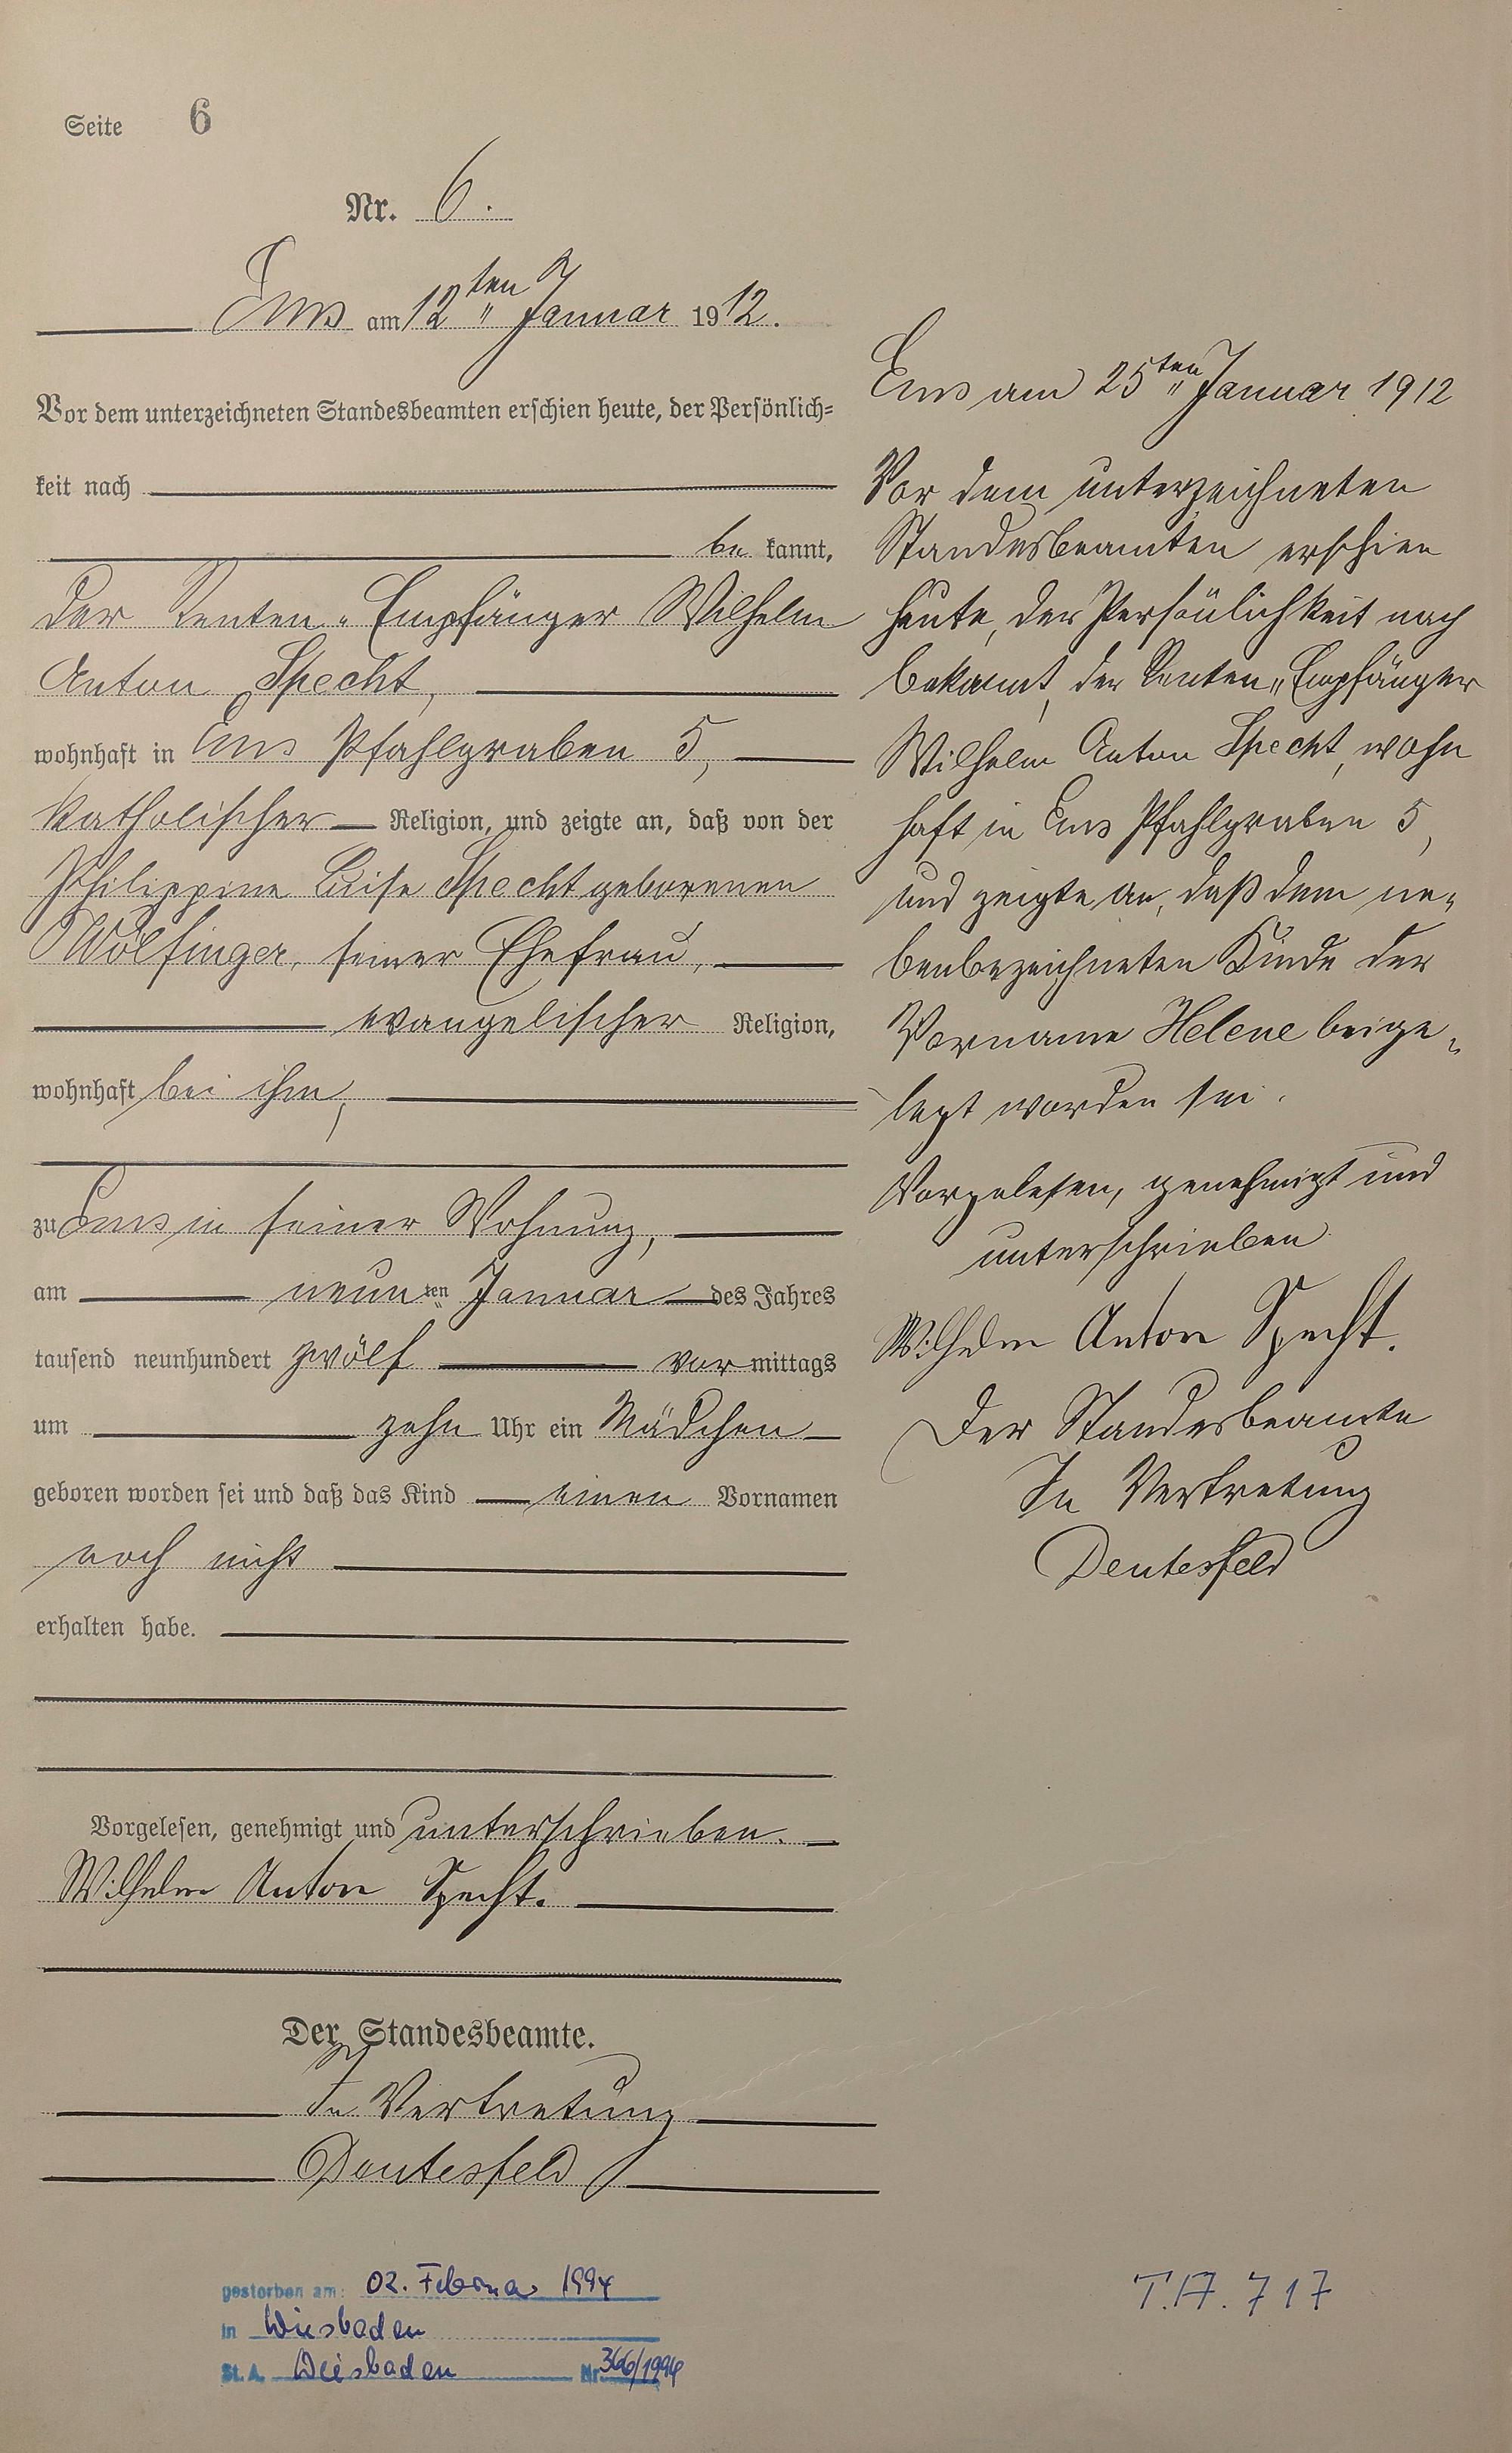 Seite 6
Nr. 6.
Ems am 12ten Januar 1912.
Vor dem unterzeichneten Standesbeamten erschien heute, der Persönlich-
keit nach
be kannt,
der Renten-Empfänger Wilhelm
Anton Specht,
wohnhaft in Ems Pfahlgraben 5,
katholischer Religion, und zeigte an, daß von der
Philippine Luise Specht geborenen
Wölfinger, seiner Ehefrau,
evangelischer Religion,
wohnhaft bei ihm,
zu Ems in seiner Wohnung,
am neunten Januar des Jahres
tausend neunhundert zwölf vor mittags
um zehn Uhr ein Mädchen
geboren worden sei und daß das Kind einen Vornamen
noch nicht
erhalten habe.
Vorgelesen, genehmigt und unterschrieben.
Wilhelm Anton Specht.
Der Standesbeamte.
In Vertretung
Deutesfeld
gestorben am: 02. Februar 1994
in Wiesbaden
St. A. Wiesbaden Nr. 366/1994
Ems am 25ten Januar 1912
Vor dem unterzeichneten
Standesbeamten erschien
heute, der Persönlichkeit nach
bekannt, der Renten-Empfänger
Wilhelm Anton Specht, wohn
haft in Ems Pfahlgraben 5,
und zeigte an, daß dem ne-
benbezeichneten Kinde der
Vorname Helene beige-
legt worden sei.
Vorgelesen, genehmigt und
unterschrieben
Wilhelm Anton Specht.
Der Standesbeamte
In Vertretung
Deutesfeld
T.A. 717